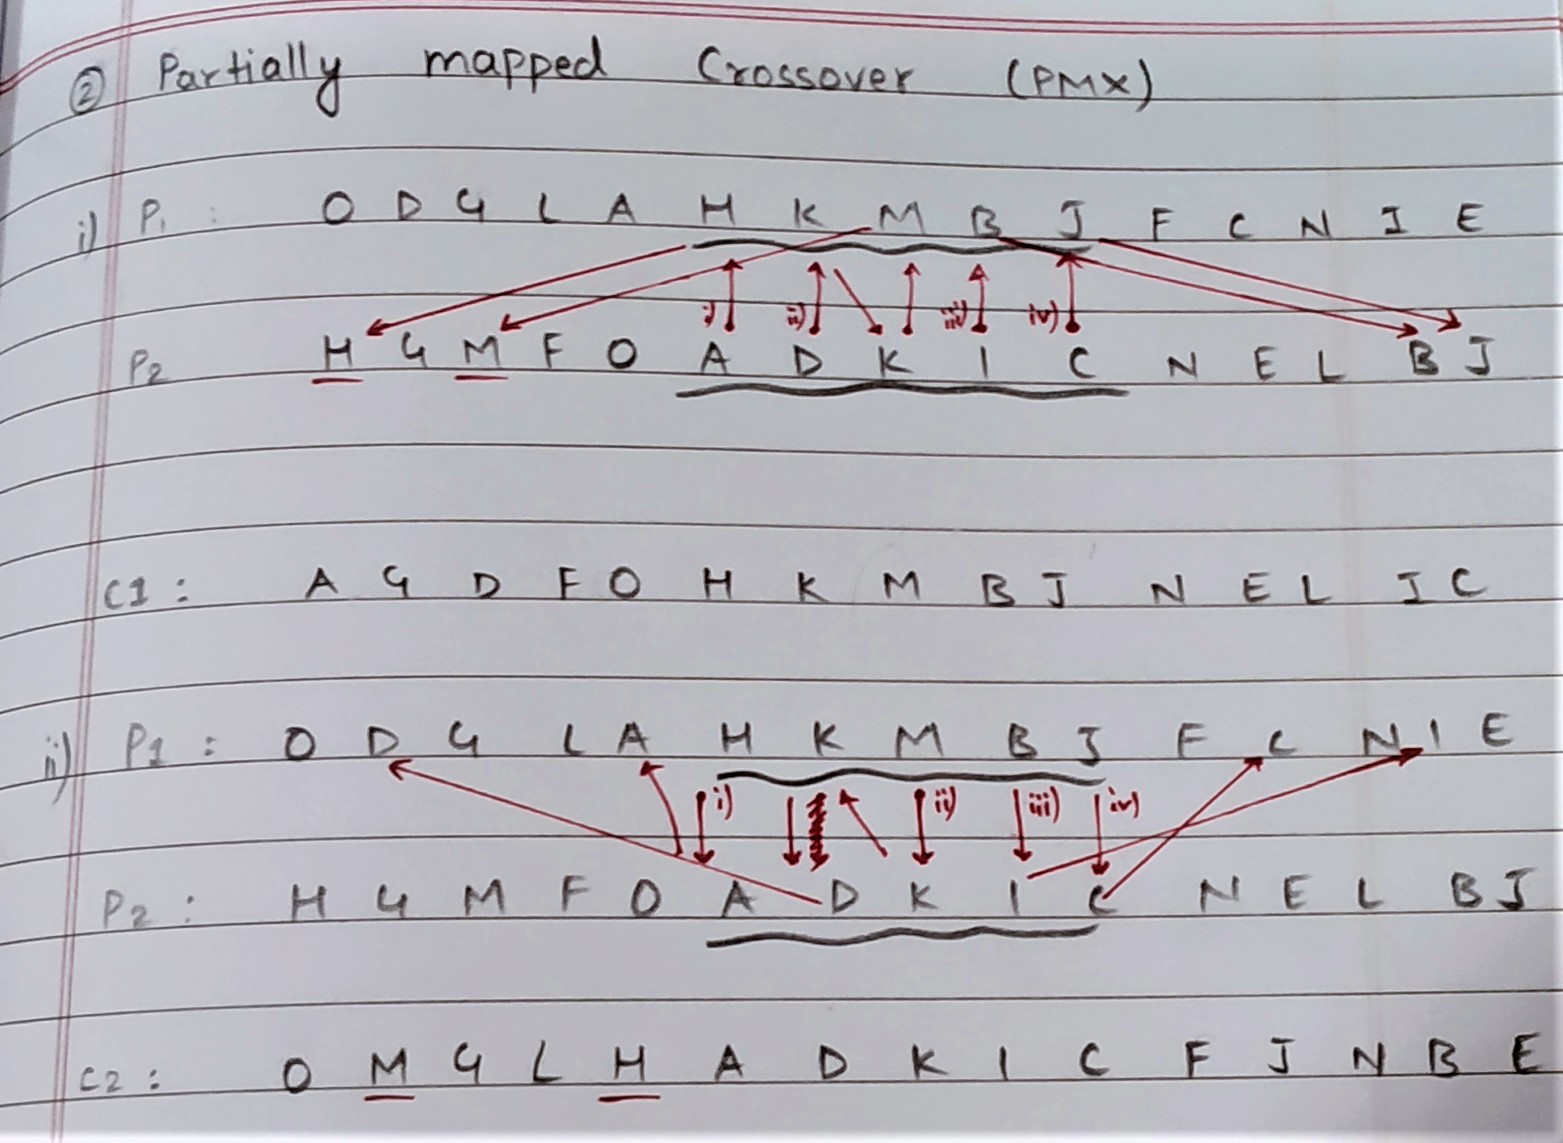 ② Partially mapped Crossover (PMX)
i) P1 : O D G L A H K M B J F C N I E
i) ii) iii) iv)
P2 H G M F O A D K I C N E L B J
C1 : A G D F O H K M B J N E L I C
ii) P1 : O D G L A H K M B J F C N I E
i) ii) iii) iv)
P2 : H G M F O A D K I C N E L B J
C2 : O M G L H A D K I C F J N B E